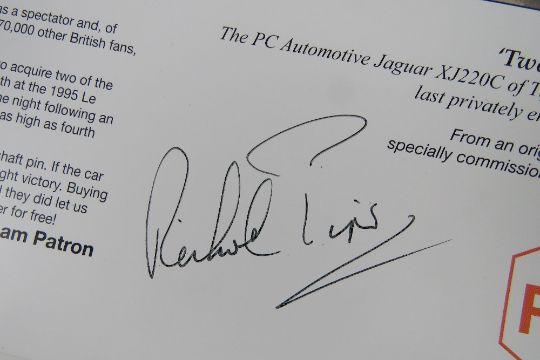 as a spectator and, of
70,000 other British fans,
o acquire two of the
th at the 1995 Le
he night following an
as high as fourth
haft pin. If the car
ght victory. Buying
they did let us
er for free!
am Patron
'Two
The PC Automotive Jaguar XJ220C of T
last privately en
From an orig
specially commission